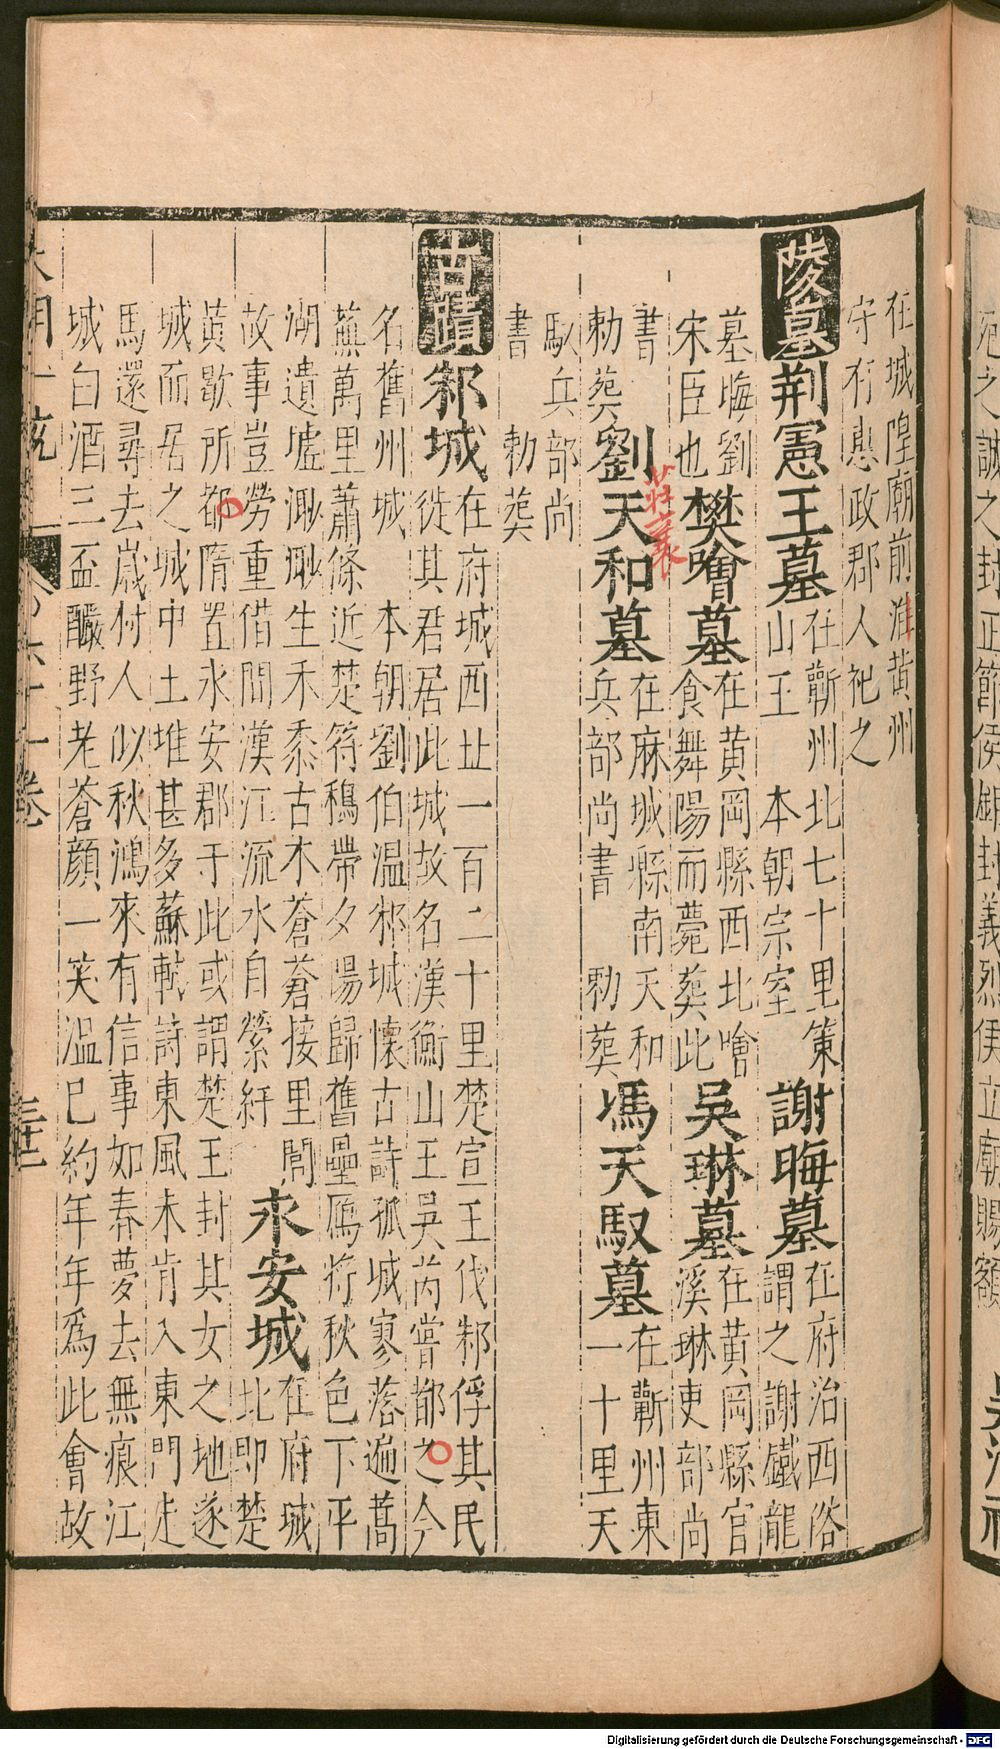 宛之誠之封正節侯鉅封義烈侯立廟賜額 吳淮祠
在城隍廟前淮黃州
守有惠政郡人祀之
陵墓 荊憲王墓 在蘄州北七十里策
山王 本朝宗室
謝晦墓 在府治西俗
謂之謝鐵龍
墓晦劉
宋臣也
樊噲墓 在黃岡縣西北噲
食舞陽而薨葬此
吳琳墓 在黃岡縣官
溪琳吏部尚
書
勅葬
劉天和墓 在麻城縣南天和
兵部尚書 勅葬
莊襄
馮天馭墓 在蘄州東
一十里天
馭兵部尚
書 勅葬
古蹟 邾城 在府城西北一百二十里楚宣王伐邾俘其民
徙其君居此城故名漢衡山王吳芮嘗都之今
名舊州城 本朝劉伯溫邾城懷古詩孤城寥落遍蒿
蕪萬里蕭條近楚符鴉帶夕陽歸舊壘鴈將秋色下平
湖遺墟生禾黍古木蒼蒼接里閭
故事豈勞重借問漢江流水自縈紆
永安城 在府城
北即楚
黃歇所都隋置永安郡于此或謂楚王封其女之地遂
城而居之城中土堆甚多蘇軾詩東風未肯入東門走
馬還尋去歲村人似秋鴻來有信事如春夢去無痕江
城白酒三盃釅野老蒼顏一笑溫已約年年爲此會故
大明一統 六十一卷
Digitalisierung gefördert durch die Deutsche Forschungsgemeinschaft - DFG